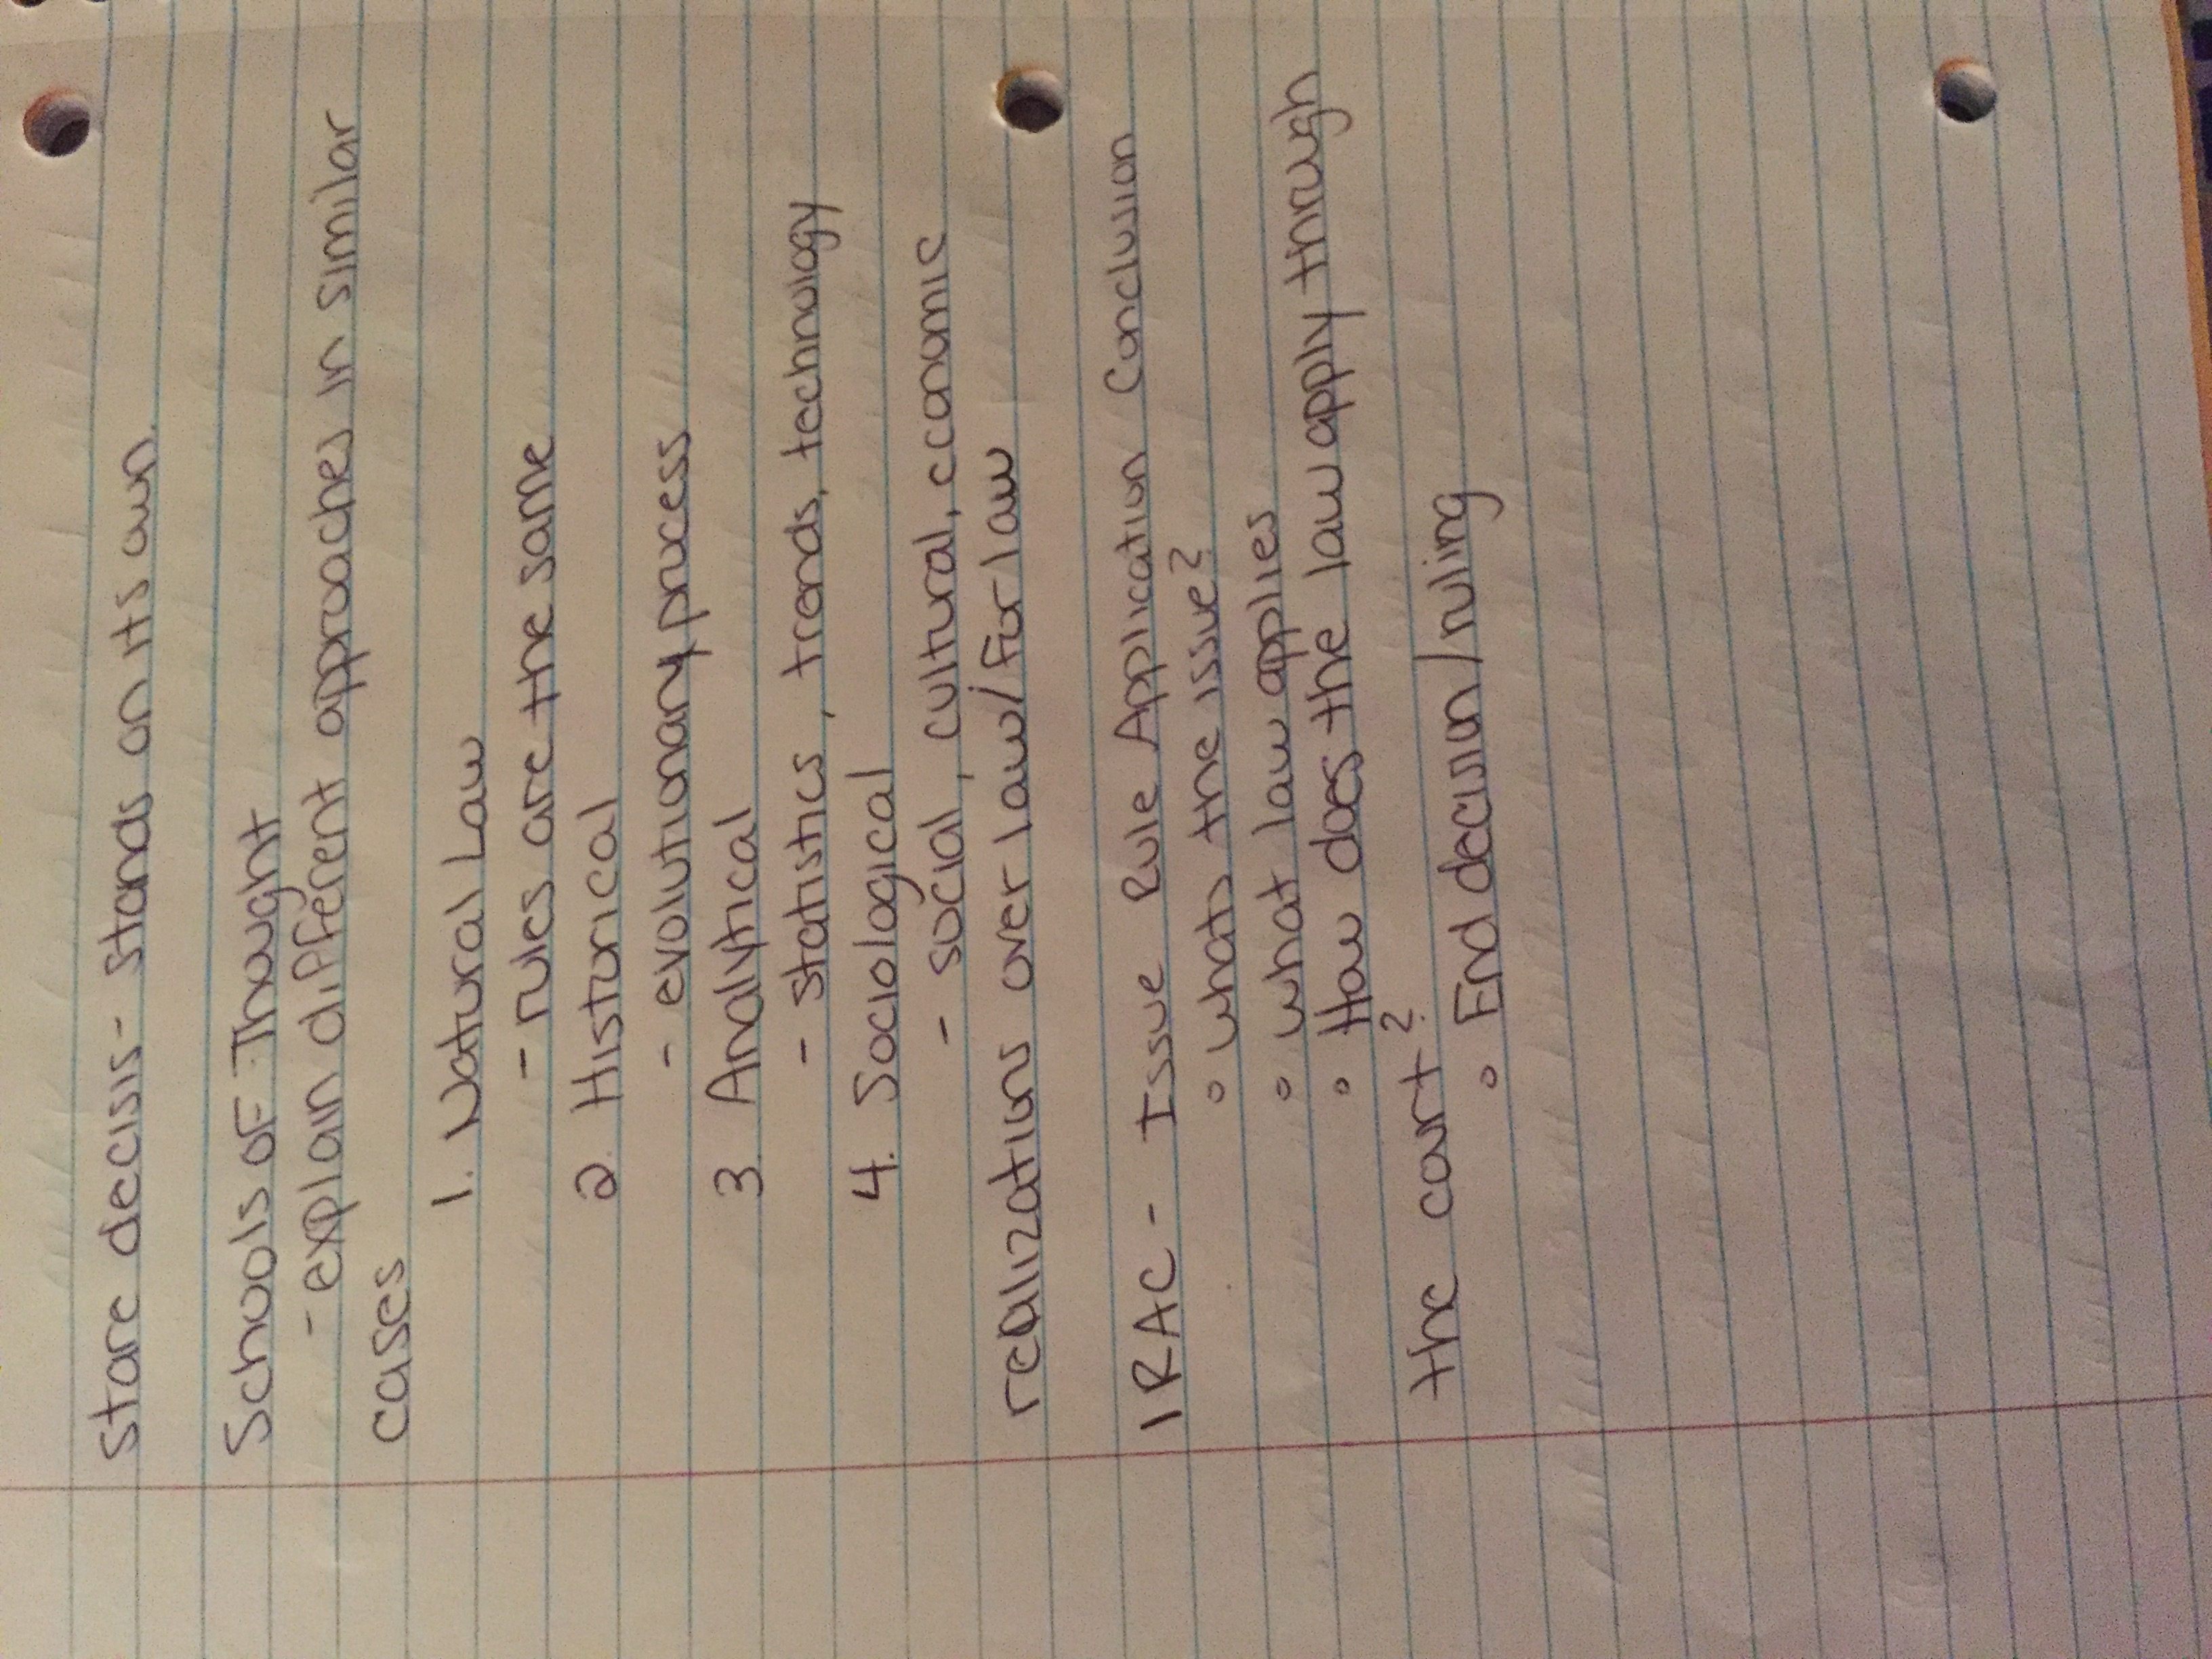 Stare decisis - stands on its own.
Schools of Thought
- explain different approaches in similar
cases
1. Natural Law
- rules are the same
2. Historical
- evolutionary process
3. Analytical
- statistics, trends, technology
4. Sociological
- social, cultural, economic
realizations over law/for law
IRAC - Issue Rule Application Conclusion
° whats the issue?
° what law applies
° How does the law apply through
the court?
° End decision/ruling